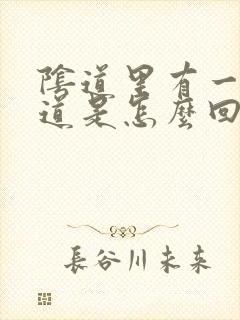 陰道里有一
道是怎麼回
長谷川未来